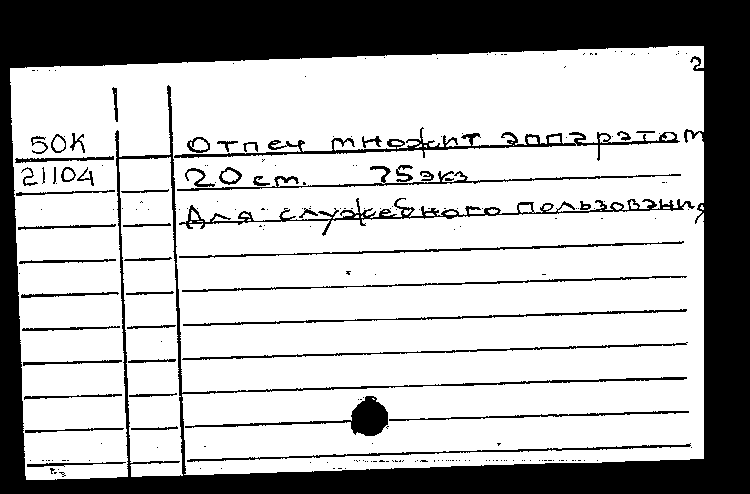 2
50К Отпеч множит аппаратом
21104 20 ст. 75 экз
Для служебного пользования